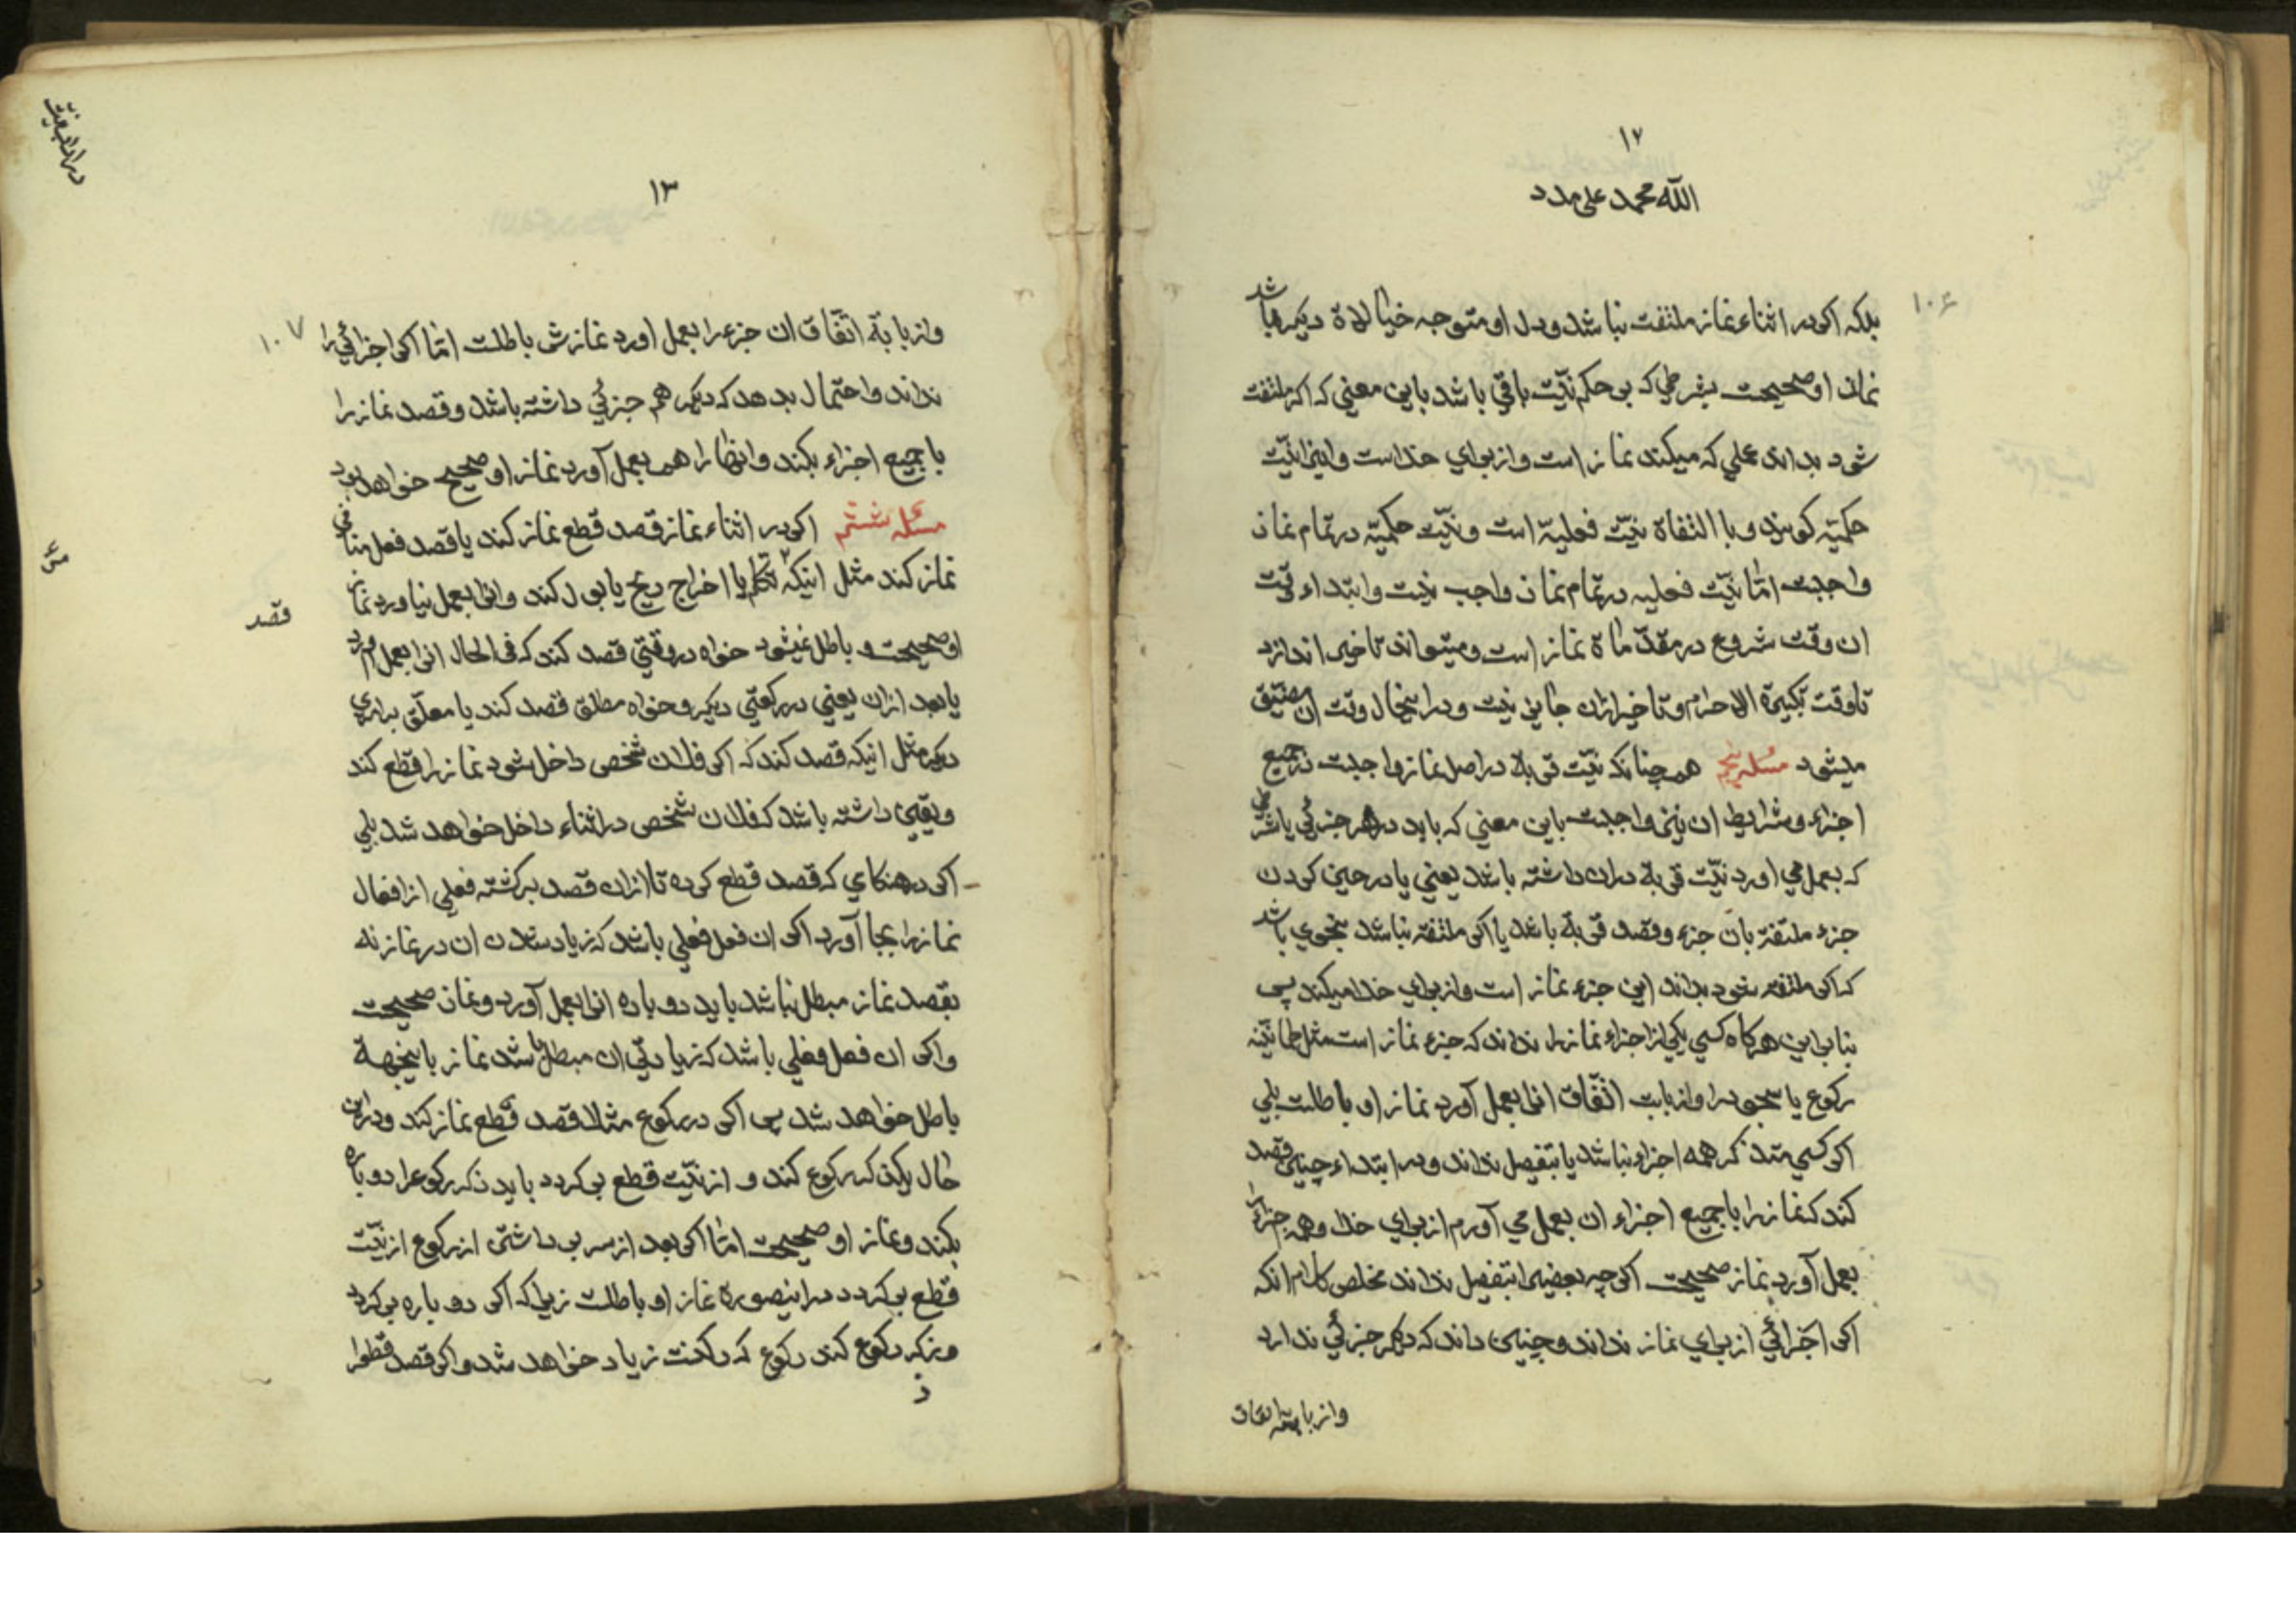 ۱۲
الله محمد علی مدد
۱۰۶
بلکه اکر در اثناء نماز ملتفت نباشد و دل او متوجه خیالاة دیکر باشد
نماز او صحیحست بشرطی که بر حکم نیّت باقی باشد باین معنی که اکر ملتفت
شود بداند عملی که میکند نماز است و از برای خداست و اینرا نیّت
حکمیّه کویند و با التفاة نیّت فعلیه است و نیّت حکمیّه در تمام نماز
واجبست امّا نیّت فعلیه در تمام نماز واجب نیست و ابتداء وقت
ان وقت شروع در مقدّماة نماز است و میتواند تاخیر اندازد
تا وقت تکبیرة الاحرام و تاخیر ازان جایز نیست و در اینحال وقت ان مضیّق
میشود مسئله پنجم همچنانکه نیّت قربة در اصل نماز واجبست در جمیع
اجزاء و شرایط ان نیز واجبست باین معنی که باید در هر جزئی یا شرطی
که بعمل می اورد نیّت قربة دران داشته باشد یعنی یا در حین کردن
جزء ملتفت بان جزء و قصد قربة باشد یا اکر ملتفت نباشد بنحوی باشد
که اکر ملتفت شود بداند این جزء نماز است و از برای خدا میکند پس
بنا براین هرکاه کسی یکی از اجزاء نماز را نداند که جزء نماز است مثل طمانینه
رکوع یا سجود را و از بابت اتّفاق انرا بعمل آورد نماز او باطلست بلی
اکر کسی متذکر همه اجزاء نباشد یا بتفصیل نداند و در ابتداء چنین قصد
کند که نماز را با جمیع اجزاء ان بعمل می آورم از برای خدا و همه اجزاء را
بعمل آورد نماز صحیحست اکر چه بعضی را بتفصیل نداند مخلص کلام انکه
اکر اجزائی از برای نماز نداند و چنین داند که دیکر جزئی ندارد
و از بابة اتفاق
۱۳
۱۰۷
و از بابة اتّفاق ان جزء را بعمل اورد نمازش باطلست امّا اکر اجزائی را
نداند و احتمال بدهد که دیکر هم جزئی داشته باشد و قصد نماز را
با جمیع اجزاء بکند و انها را هم بعمل آورد نماز او صحیح خواهد بود
مسئله ششم اکر در اثناء نماز قصد قطع نماز کند یا قصد فعل منافی
نماز کند مثل اینکه تکلم یا اخراج ریح یا بول کند و انرا بعمل نیاورد نماز
او صحیحست و باطل نمیشود خواه در وقتی قصد کند که فی الحال انرا بعمل اورد
قصد
یا بعد ازان یعنی در رکعتی دیکر و خواه مطلق قصد کند یا معلّق بر امری
دیکر مثل اینکه قصد کند که اکر فلان شخص داخل شود نماز را قطع کند
و یقین داشته باشد که فلان شخص در اثناء داخل خواهد شد بلی
اکر در هنکامی که قصد قطع کرده تا ازان قصد برکشته فعلی از افعال
نماز را بجا آورد اکر ان فعل فعلی باشد که زیاد شدن ان در نماز نه
بقصد نماز مبطل نباشد باید دوباره انرا بعمل آورد و نماز صحیحست
و اکر ان فعل فعلی باشد که زیادتی ان مبطل باشد نماز باینجهة
باطل خواهد شد پس اکر در رکوع مثلا قصد قطع نماز کند و در این
حال ذکر رکوع کند و از نیّت قطع برکردد باید ذکر رکوع را دوباره
بکند و نماز او صحیحست امّا اکر بعد از سر برداشتن از رکوع از نیّت
قطع برکردد در اینصورة نماز او باطلست زیرا که اکر دوباره برکردد
و ذکر رکوع کند رکوع که رکنست زیاد خواهد شد و اکر قصد قطع را